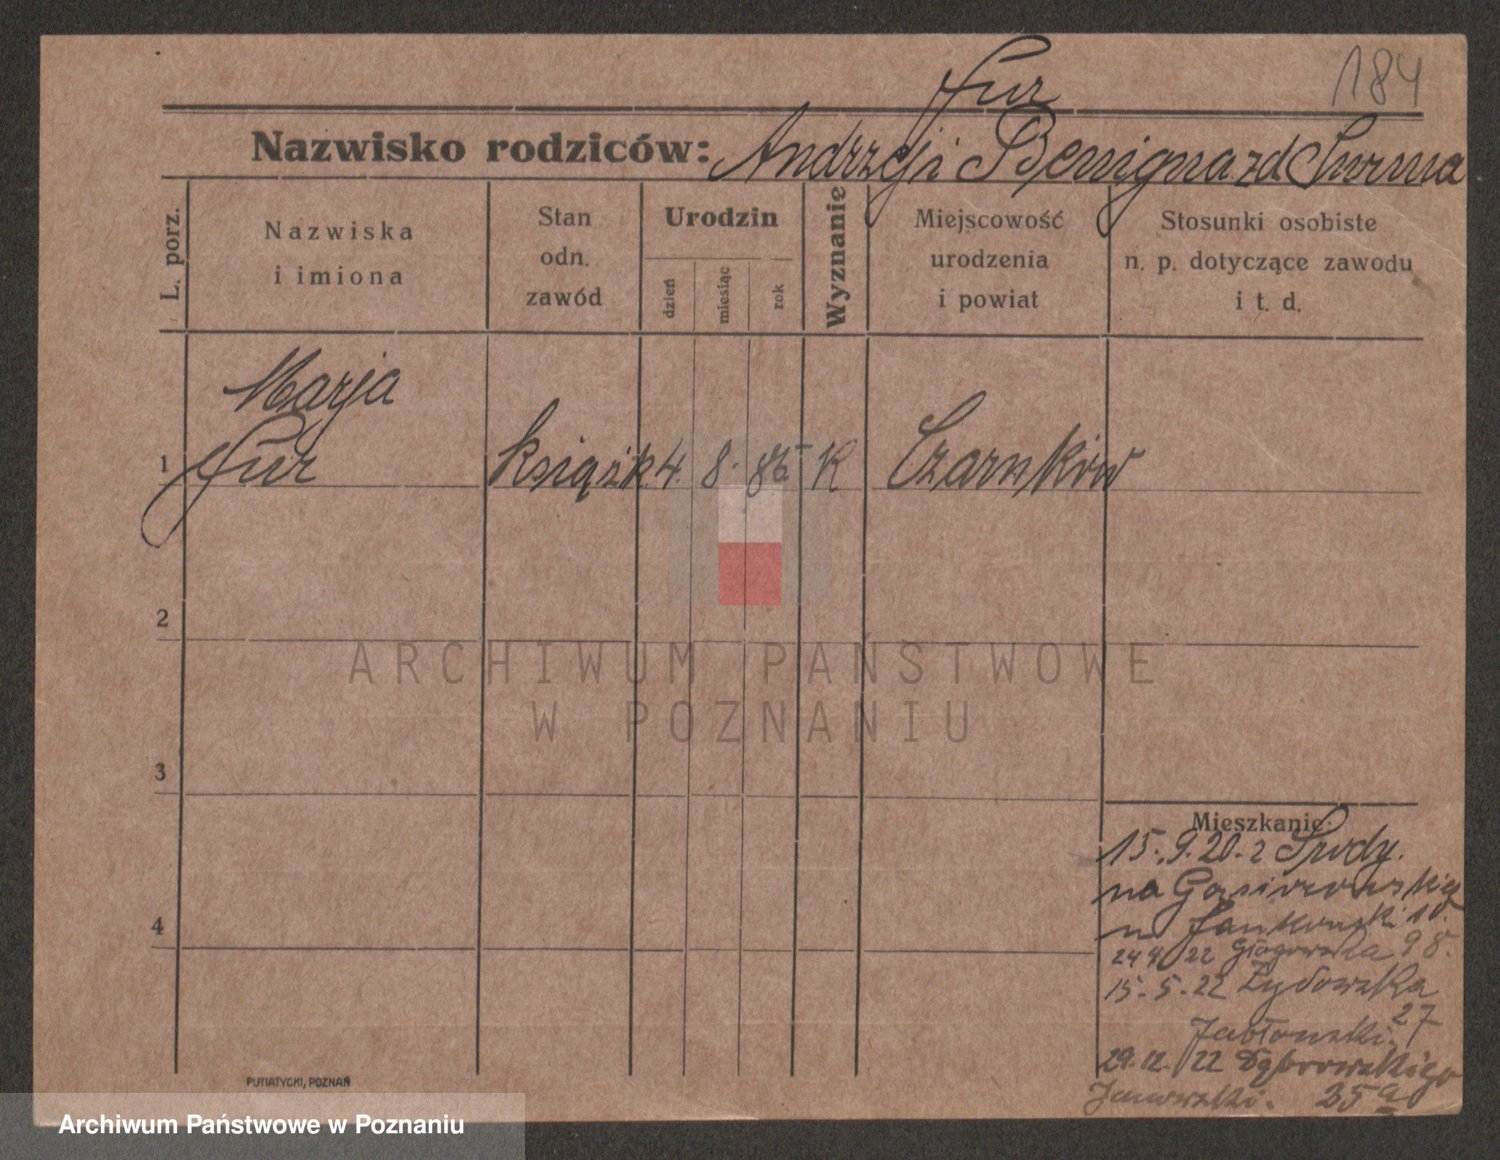 184
Fur
Nazwisko rodziców: Andrzej i Benigna zd Surma
L. porz.
Nazwiska
i imiona
Stan
odn.
zawód
Urodzin
dzień
miesiąc
rok
Wyznanie
Miejscowość
urodzenia
i powiat
Stosunki osobiste
n. p. dotyczące zawodu
i t. d.
Marja
1 Fur książk. 4. 8. 86 K Czarnków
2
3
4
Mieszkanie:
15.9.20 z Środy.
na Gąsiorowskich
u Jankowski 10.
24 4 22 Głogowska 98.
15.5.22 Żydowska
27
Jabłonski.
29.12.22 Dąbrowskiego
Janowski. 35a
PUTIATYCKI, POZNAŃ
ARCHIWUM PAŃSTWOWE
W POZNANIU
Archiwum Państwowe w Poznaniu